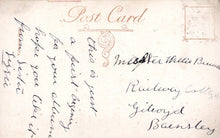 Post Card
this is just
a post being
for your album
hope you like it
from Sister
Lizzie
Master Willie
Railway Cottage
Gilroyd
Barnsley